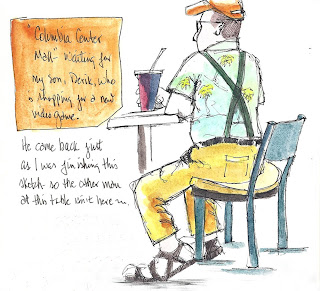 "Columbia Center
Mall" waiting for
my son, Derik, who
is shopping for a new
video game.
He came back just
as I was finishing this
sketch - so the other man
at this table isn't here